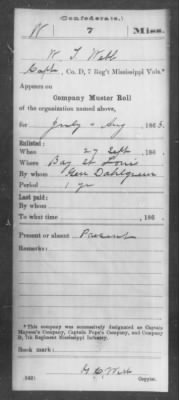 (Confederate.)
W 7 Miss.
W. T. Webb
Capt., Co. D, 7 Reg't Mississippi Vols.*
Appears on
Company Muster Roll
of the organization named above,
for July & Aug, 1863.
Enlisted:
When 27 Sept, 186
Where Bay St Louis
By whom Gen Dahlgreen
Period 1 yr
Last paid:
By whom
To what time , 186
Present or absent Present
Remarks:
*This company was successively designated as Captain
Mayson's Company, Captain Pope's Company, and Company
D, 7th Regiment Mississippi Infantry.
Book mark:
(642)
Copyist.